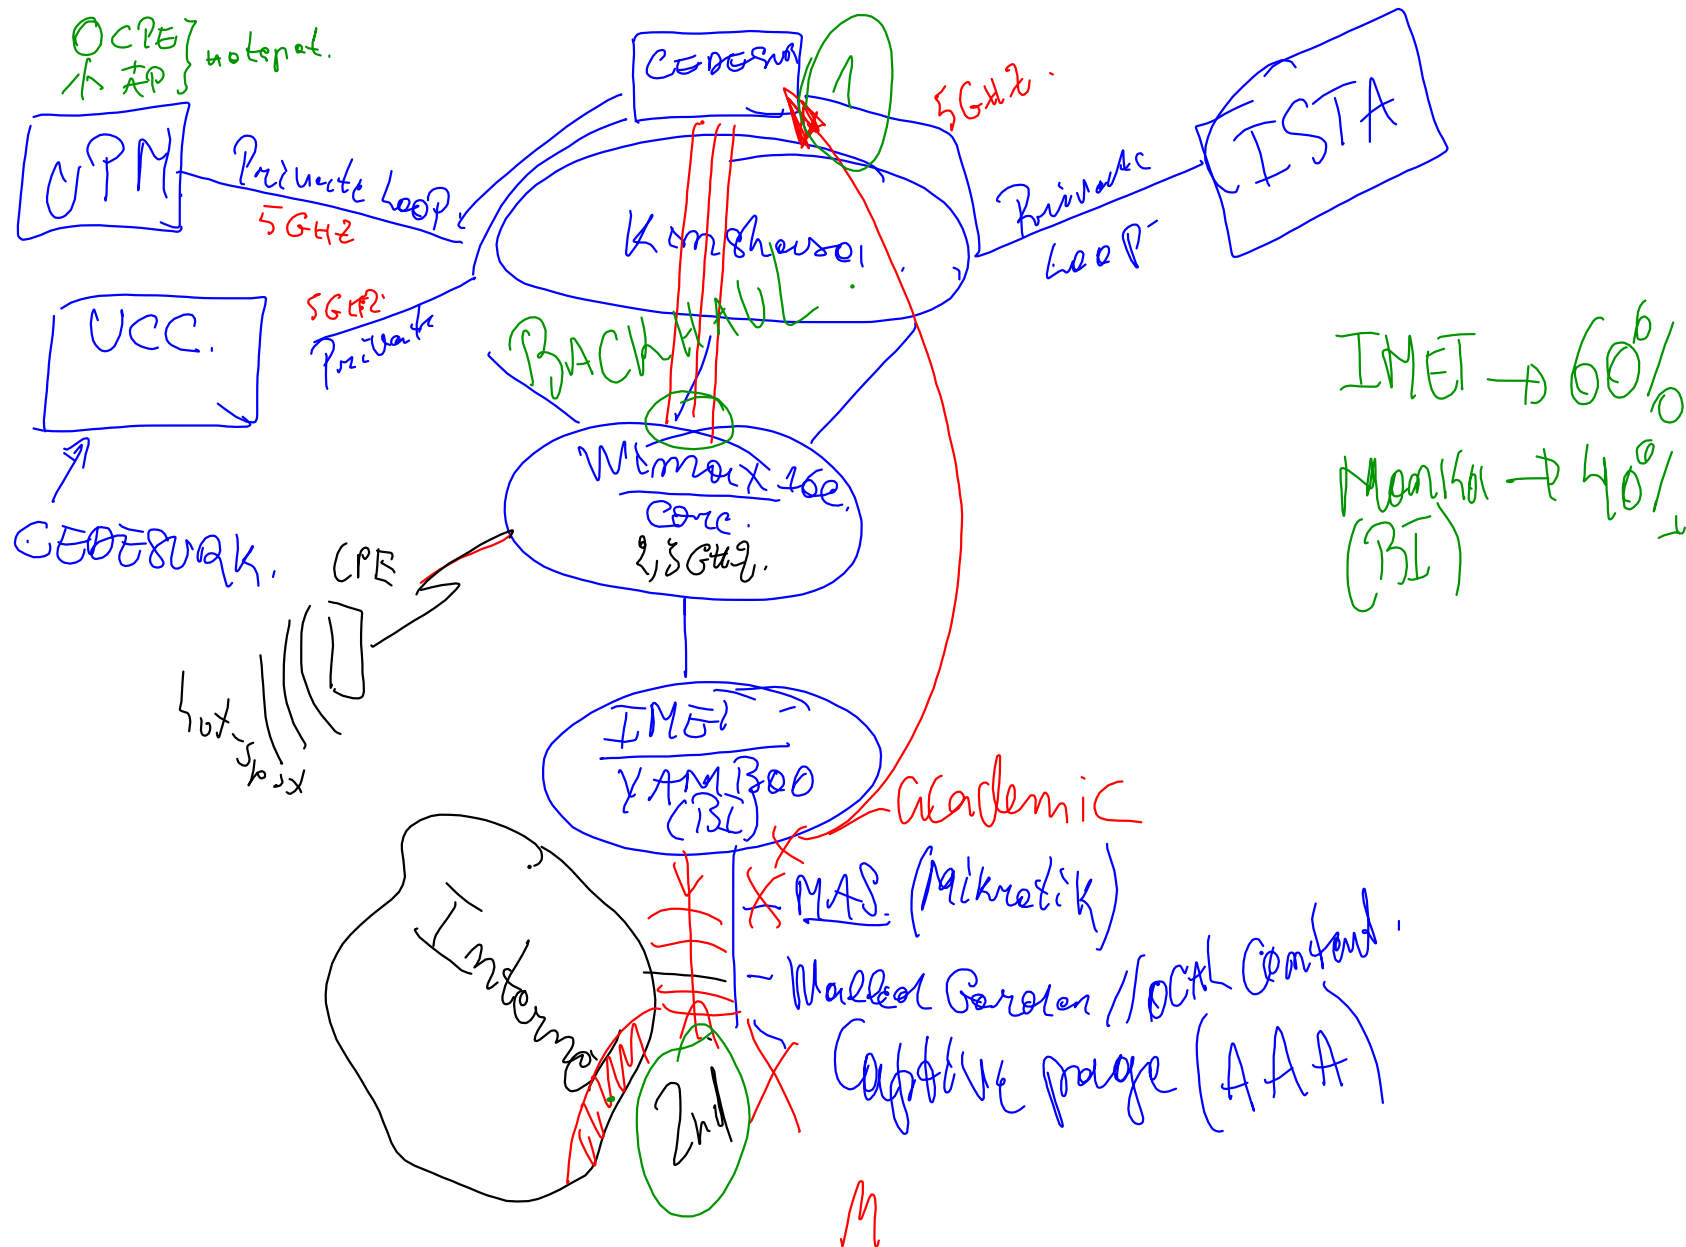 CPE
AP
hotspot.
CEDESUR
1
5GHz.
ISTA
UPM
Private Loop.
5GHz
Private
Loop
Kinshasa
5GHz
Private
UCC.
BACKHAUL
IMET → 60%
Manika → 40%
(BI)
Wimax 16e.
Core.
2,5GHz.
CEDESURK.
CPE
hot-spot
IMET
YAMBOO
(BI)
academic
MAS. (Mikrotik)
Internet
- Walled Garden // LOCAL Content.
Captive page (AAA)
2nd
M